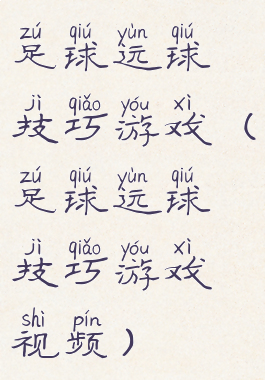 zú qiú yùn qiú
足球运球
jì qiǎo yóu xì
技巧游戏（
zú qiú yùn qiú
足球运球
jì qiǎo yóu xì
技巧游戏
shì pín
视频）